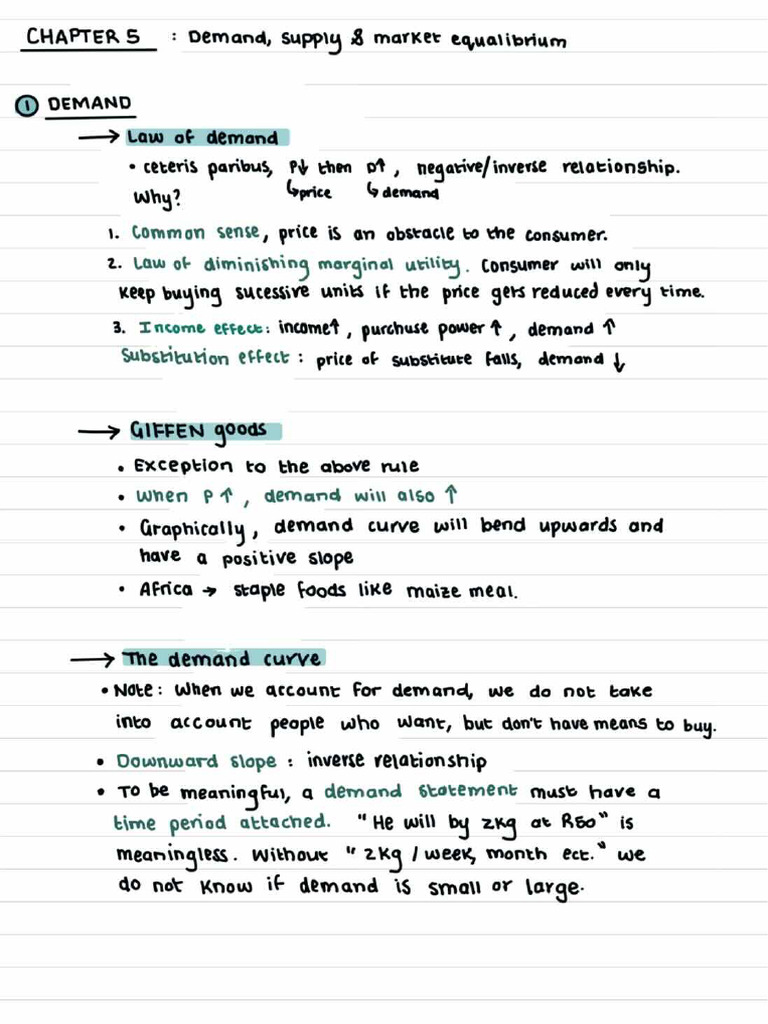 CHAPTER 5 : Demand, supply & market equalibrium
① DEMAND
→ Law of demand
• ceteris paribus, P↓ then D↑, negative/inverse relationship.
↳price ↳demand
Why?
1. Common sense, price is an obstacle to the consumer.
2. Law of diminishing marginal utility. Consumer will only
keep buying sucessive units if the price gets reduced every time.
3. Income effect: income↑, purchuse power↑, demand ↑
Substitution effect : price of substitute falls, demand ↓
→ GIFFEN goods
• Exception to the above rule
• When P↑, demand will also ↑
• Graphically, demand curve will bend upwards and
have a positive slope
• Africa → staple foods like maize meal.
→ The demand curve
• Note: When we account for demand, we do not take
into account people who want, but don't have means to buy.
• Downward slope : inverse relationship
• To be meaningful, a demand statement must have a
time period attached. "He will by 2kg at R50" is
meaningless. Without "2kg / week, month ect." we
do not know if demand is small or large.